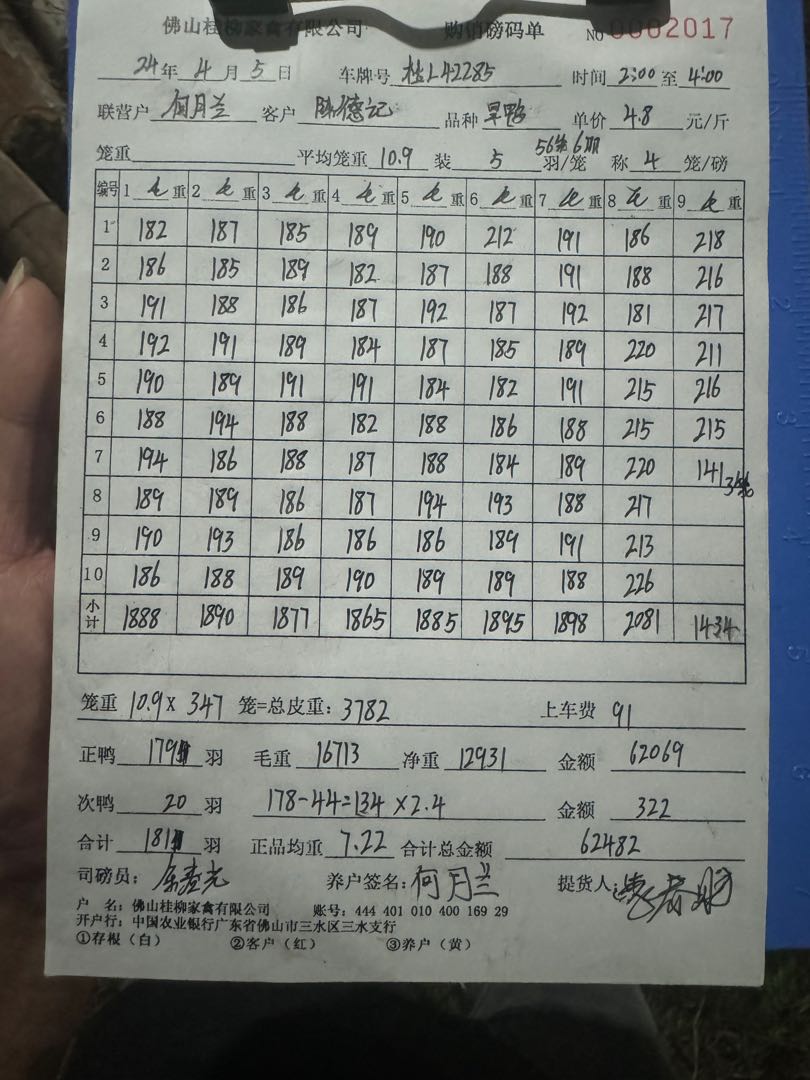 佛山桂柳家禽有限公司 购销磅码单 NO 0002017
24年 4月 5日 车牌号 桂L42285 时间 2:00 至 4:00
联营户 何月兰 客户 陈德记 品种 旱鸭 单价 4.8 元/斤
56笼6羽
笼重 平均笼重 10.9 装 5 羽/笼 称 4 笼/磅
编号 1 毛重 2 毛重 3 毛重 4 毛重 5 毛重 6 毛重 7 毛重 8 毛重 9 毛重
1 182 187 185 189 190 212 191 186 218
2 186 185 189 182 187 188 191 188 216
3 191 188 186 187 192 187 192 181 217
4 192 191 189 184 187 185 189 220 211
5 190 189 191 191 184 182 191 215 216
6 188 194 188 182 188 186 188 215 215
7 194 186 188 187 188 184 189 220 141 3笼
8 189 189 186 187 194 193 188 217
9 190 193 186 186 186 189 191 213
10 186 188 189 190 189 189 188 226
小计 1888 1890 1877 1865 1885 1895 1898 2081 1434
笼重 10.9 × 347 笼=总皮重: 3782 上车费 91
正鸭 1791 羽 毛重 16713 净重 12931 金额 62069
次鸭 20 羽 178-44=134×2.4 金额 322
合计 1811 羽 正品均重 7.22 合计总金额 62482
司磅员: 养户签名: 何月兰 提货人:
户 名: 佛山桂柳家禽有限公司 账号: 444 401 010 400 169 29
开户行: 中国农业银行广东省佛山市三水区三水支行
①存根(白) ②客户(红) ③养户(黄)